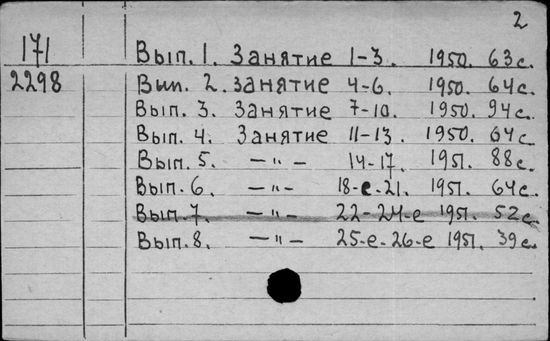 2
171
2298
Вып. 1. Занятие 1-3. 1950. 63 с.
Вып. 2. Занятие 4-6. 1950. 64 с.
Вып. 3. Занятие 7-10. 1950. 94 с.
Вып. 4. Занятие 11-13. 1950. 64 с.
Вып. 5. —"— 14-17. 1951. 88 с.
Вып. 6. —"— 18-е-21. 1951. 64 с.
Вып. 7. —"— 22-24-е 1951. 52 с.
Вып. 8. —"— 25-е-26-е 1951. 39 с.